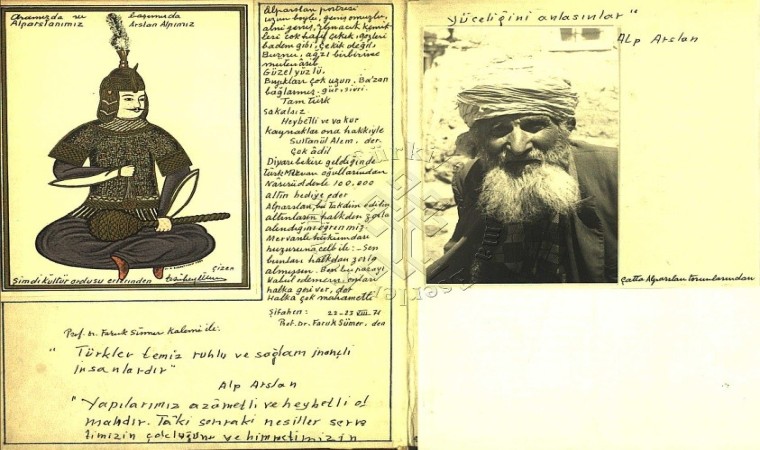 Aramızda ve başımızda
Alparslanımız Arslan Alpımız
Çizen
Şimdi kültür ordusu erlerinden
Alparslan portresi
uzun boylu, geniş omuzlu,
alnı geniş, yanacık kemik
leri çok hafif çekik, gözleri
badem gibi, çekik değil,
Burnu, ağzı birbirine
mütenasib
Güzel yüzlü.
Bıyıkları çok uzun. Ba'zan
bağlarmış. gür, sivri.
Tam türk
Sakalsız
Heybetli ve vakur
Kaynaklar ona hakkiyle
Sultanül Alem, der.
Çok âdil
Diyarıbekire geldiğinde
türk Mervan oğullarından
Nasırüddevle 100.000
altın hediye eder
Alparslan, bu takdim edilen
altınların halkdan zorla
alındığını öğrenmiş.
Mervanlı hükümdarı
huzuruna celb ile: - Sen
bunları halkdan zorla
almışsın. Ben bu parayı
kabul edemem, onları
halka geri ver, der
Halka çok mahametli
Şifahen: 22-23 VIII. 71
Prof. Dr. Faruk Sümer, den
Prof. Dr. Faruk Sümer Kalemi ile:
"Türkler temiz ruhlu ve sağlam inançlı
insanlardır"
Alp Arslan
"Yapılarımız azâmetli ve heybetli ol
malıdır. Tâki sonraki nesiller serve
timizin çokluğunu ve himmetimizin
yüceliğini anlasınlar"
Alp Arslan
Çatta Alparslan torunlarından